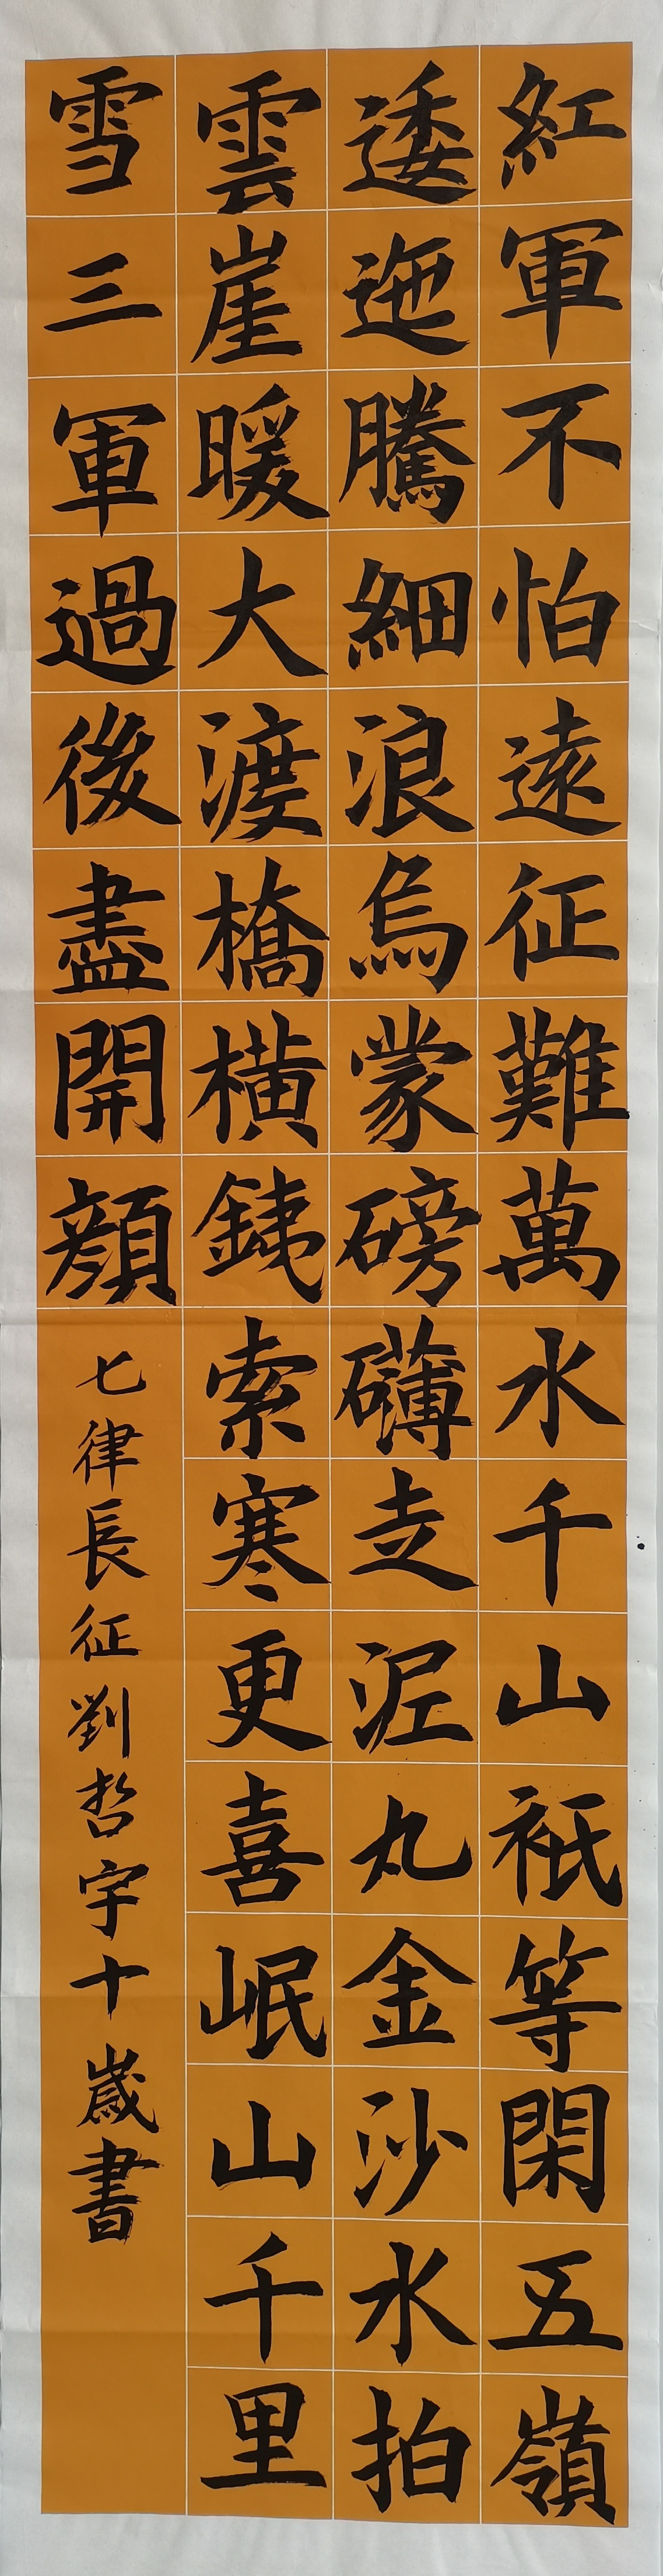 紅軍不怕遠征難萬水千山祇等閑五嶺
逶迤騰細浪烏蒙磅礴走泥丸金沙水拍
雲崖暖大渡橋橫鐵索寒更喜岷山千里
雪三軍過後盡開顏七律長征劉哲宇十歲書